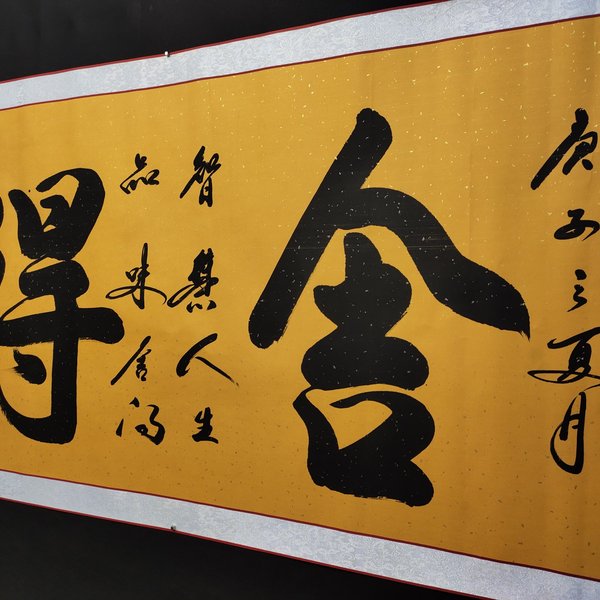 庚子之夏月
舍
智慧人生
品味舍得
得